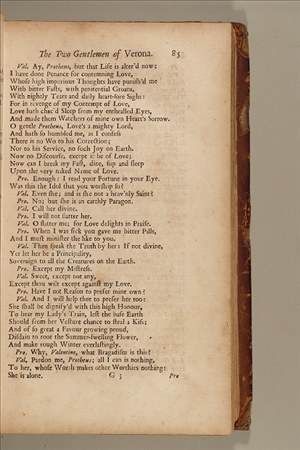 The Two Gentlemen of Verona. 85
Val. Ay, Protheus, but that Life is alter'd now;
I have done Penance for contemning Love,
Whose high imperious Thoughts have punish'd me
With bitter Fasts, with penitential Groans,
With nightly Tears and daily heart-sore Sighs:
For in revenge of my Contempt of Love,
Love hath chac'd Sleep from my enthralled Eyes,
And made them Watchers of mine own Heart's Sorrow.
O gentle Protheus, Love's a mighty Lord,
And hath so humbled me, as I confess
There is no Wo to his Correction;
Nor to his Service, no such Joy on Earth.
Now no Discourse, except it be of Love;
Now can I break my Fast, dine, sup and sleep
Upon the very naked Name of Love.
Pro. Enough: I read your Fortune in your Eye.
Was this the Idol that you worship so?
Val. Even she; and is she not a heav'nly Saint?
Pro. No; but she is an earthly Paragon.
Val. Call her divine.
Pro. I will not flatter her.
Val. O flatter me; for Love delights in Praise.
Pro. When I was sick you gave me bitter Pills,
And I must minister the like to you.
Val. Then speak the Truth by her: If not divine,
Yet let her be a Principality,
Soveraign to all the Creatures on the Earth.
Pro. Except my Mistress.
Val. Sweet, except not any,
Except thou wilt except against my Love.
Pro. Have I not Reason to prefer mine own?
Val. And I will help thee to prefer her too:
She shall be dignify'd with this high Honour,
To bear my Lady's Train, lest the base Earth
Should from her Vesture chance to steal a Kiss;
And of so great a Favour growing proud,
Disdain to root the Summer-swelling Flower,
And make rough Winter everlastingly.
Pro. Why, Valentine, what Bragadism is this?
Val. Pardon me, Protheus; all I can is nothing,
To her, whose Worth makes other Worthies nothing:
She is alone. G 3 Pro